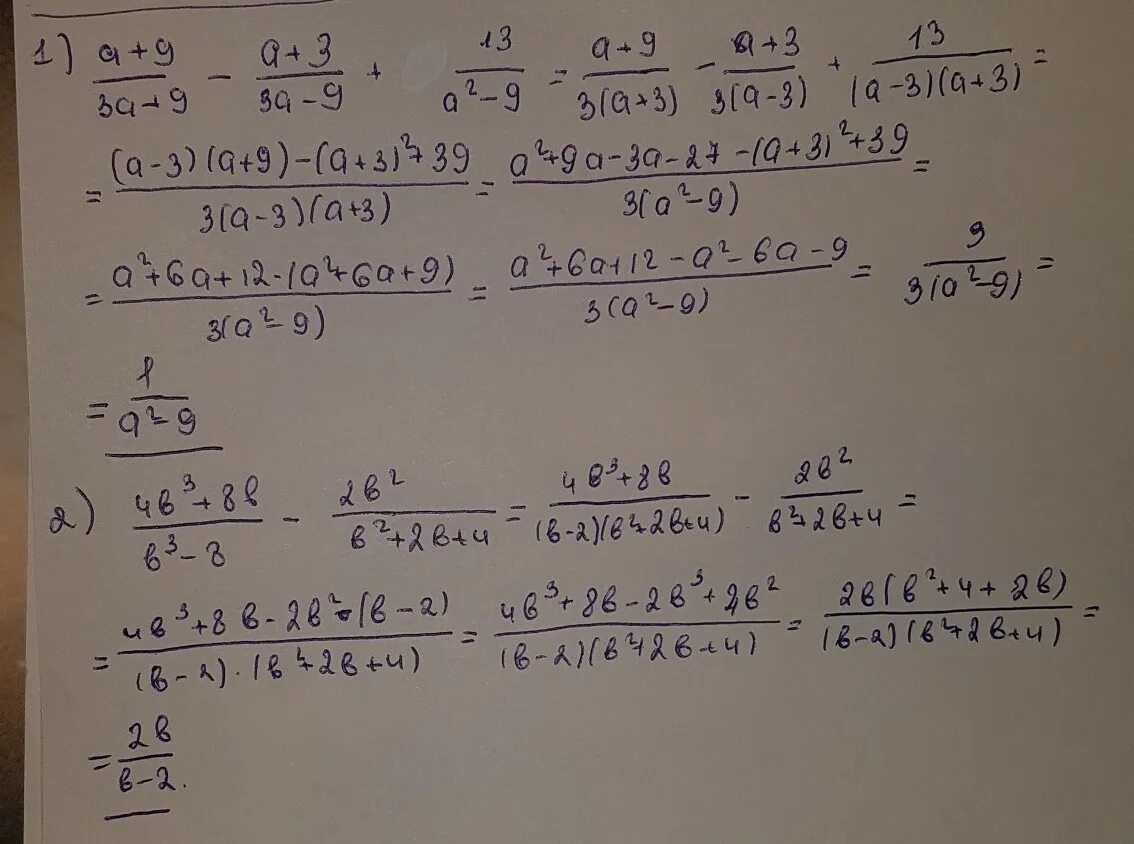 1) (a+9)/(3a+9) - (a+3)/(3a-9) + 13/(a²-9) = (a+9)/(3(a+3)) - (a+3)/(3(a-3)) + 13/((a-3)(a+3)) =
= ((a-3)(a+9)-(a+3)²+39)/(3(a-3)(a+3)) = (a²+9a-3a-27-(a+3)²+39)/(3(a²-9)) =
= (a²+6a+12-(a²+6a+9))/(3(a²-9)) = (a²+6a+12-a²-6a-9)/(3(a²-9)) = 3/(3(a²-9)) =
= 1/(a²-9)
2) (4в³+8в)/(в³-8) - 2в²/(в²+2в+4) = (4в³+8в)/((в-2)(в²+2в+4)) - 2в²/(в²+2в+4) =
= (4в³+8в-2в²·(в-2))/((в-2)·(в²+2в+4)) = (4в³+8в-2в³+4в²)/((в-2)(в²+2в+4)) = 2в(в²+4+2в)/((в-2)(в²+2в+4)) =
= 2в/(в-2).